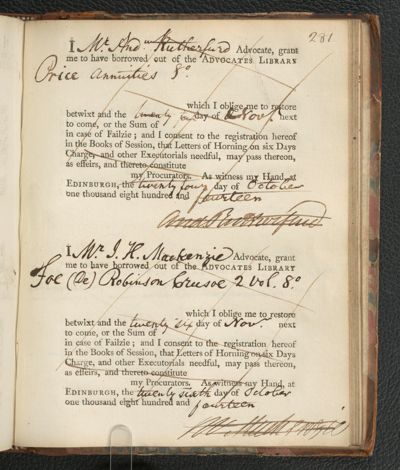 281
I Mr. Andw Rutherfurd Advocate, grant
me to have borrowed out of the ADVOCATES LIBRARY
Price Annuities 8o
which I oblige me to restore
betwixt and the twenty day of Novr. next
to come, or the Sum of
in case of Failzie; and I consent to the registration hereof
in the Books of Session, that Letters of Horning on six Days
Charge, and other Executorials needful, may pass thereon,
as effeirs, and thereto constitute
my Procurators. As witness my Hand, at
EDINBURGH, the twenty four day of October
one thousand eight hundred and fourteen
And Rutherfurd
I Mr. J. H. Mackenzie Advocate, grant
me to have borrowed out of the ADVOCATES LIBRARY
Foe (De) Robinson Crusoe 2 Vol. 8o
which I oblige me to restore
betwixt and the twenty six day of Novr. next
to come, or the Sum of
in case of Failzie; and I consent to the registration hereof
in the Books of Session, that Letters of Horning on six Days
Charge, and other Executorials needful, may pass thereon,
as effeirs, and thereto constitute
my Procurators. As witness my Hand, at
EDINBURGH, the twenty sixth day of October
one thousand eight hundred and fourteen